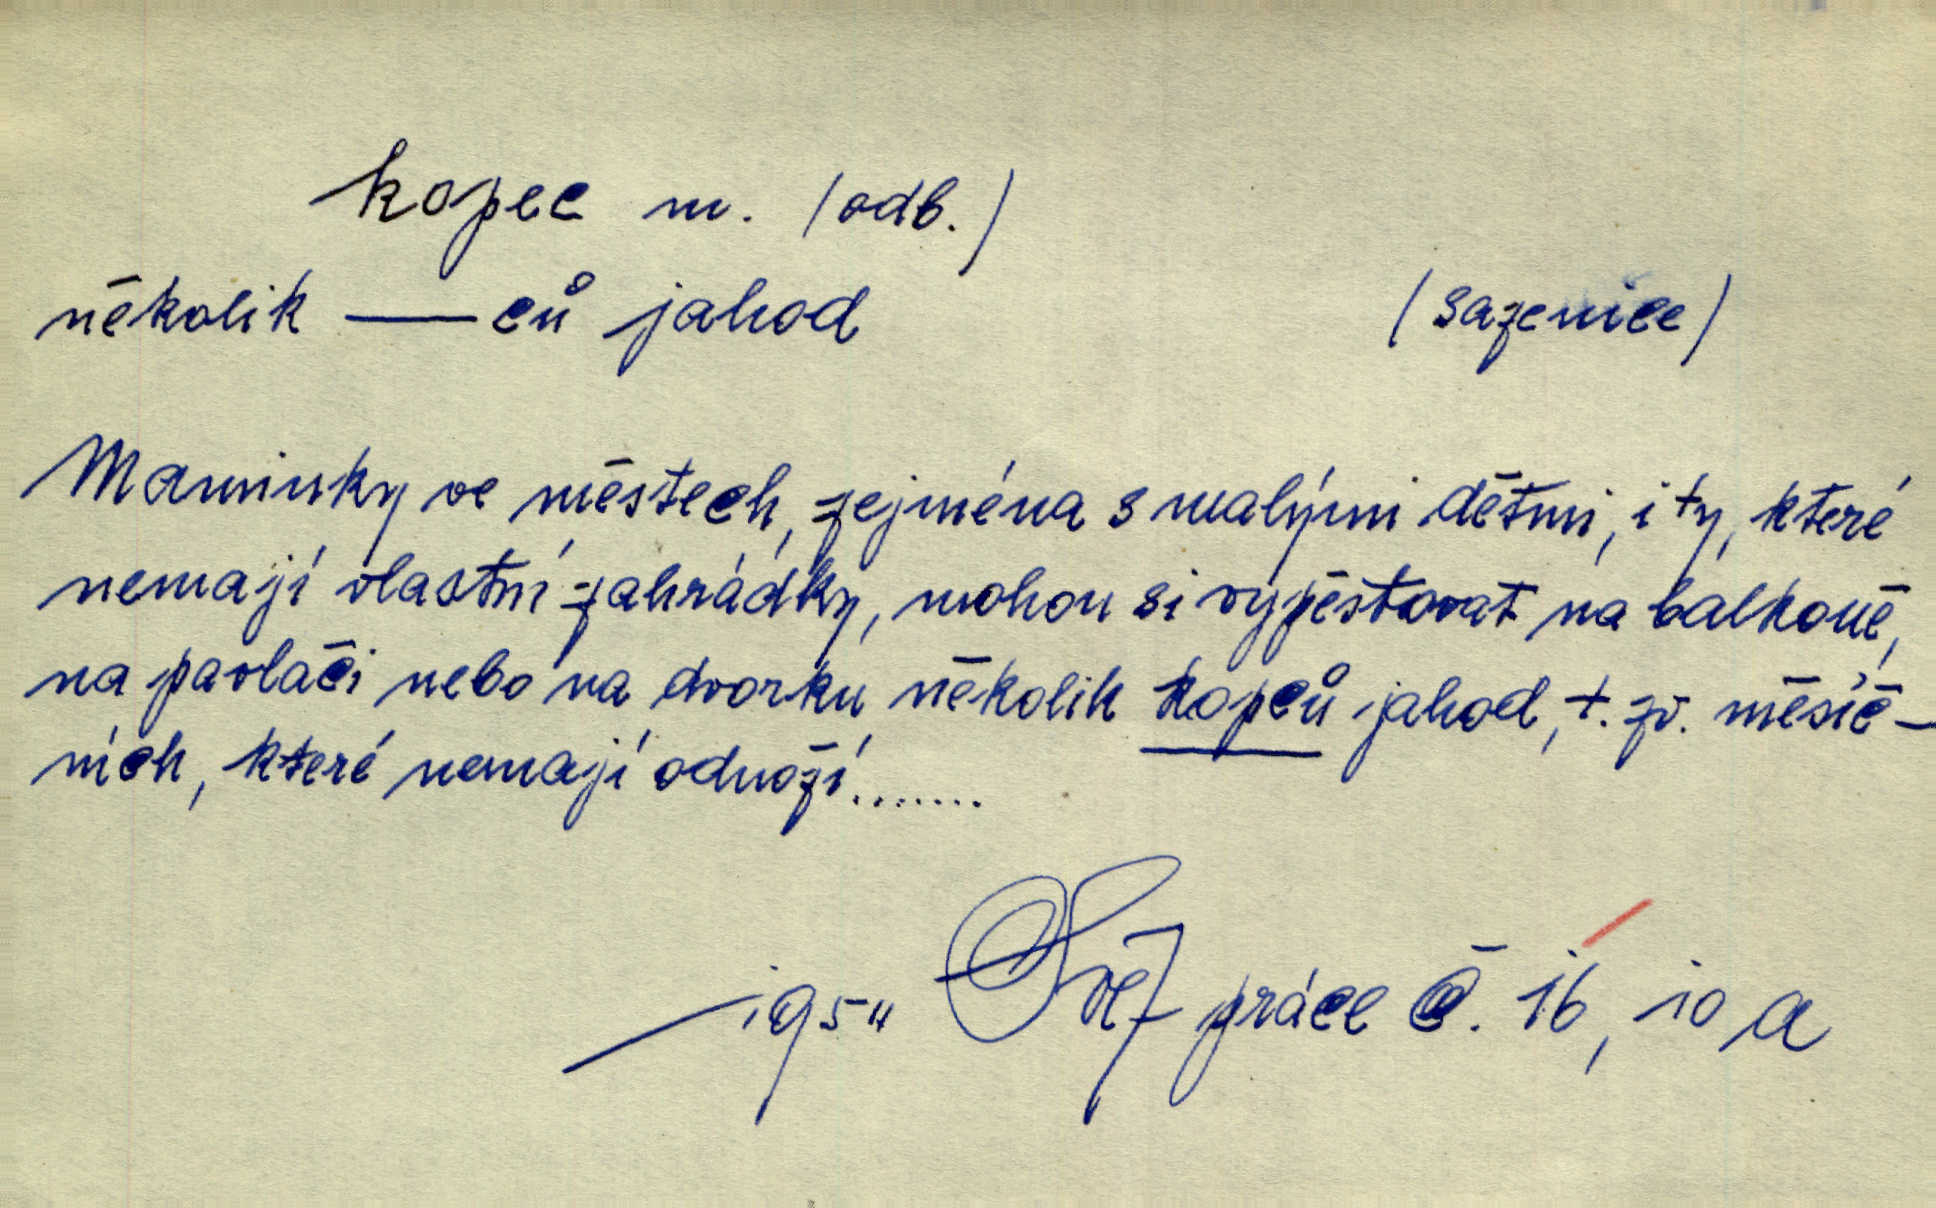 kopec m. /odb./
několik —— ců jahod /sazenice/
Maminky ve městech, zejména s malými dětmi, i ty, které
nemají vlastní zahrádky, mohou si vypěstovat na balkoně,
na pavlači nebo na dvorku několik kopců jahod, t. zv. měsíč-
ních, které nemají odnoží.......
1954 Svět práce č. 16, 10 a